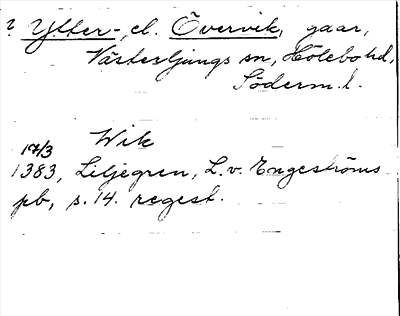 ? Ytter-, el. Övervik, gaar,
Västerljungs sn, Hölebo hd,
Söderm. l.
Wik
14/3
1383, Liljegren, L. v. Engeströms
pb, s. 14. regest.